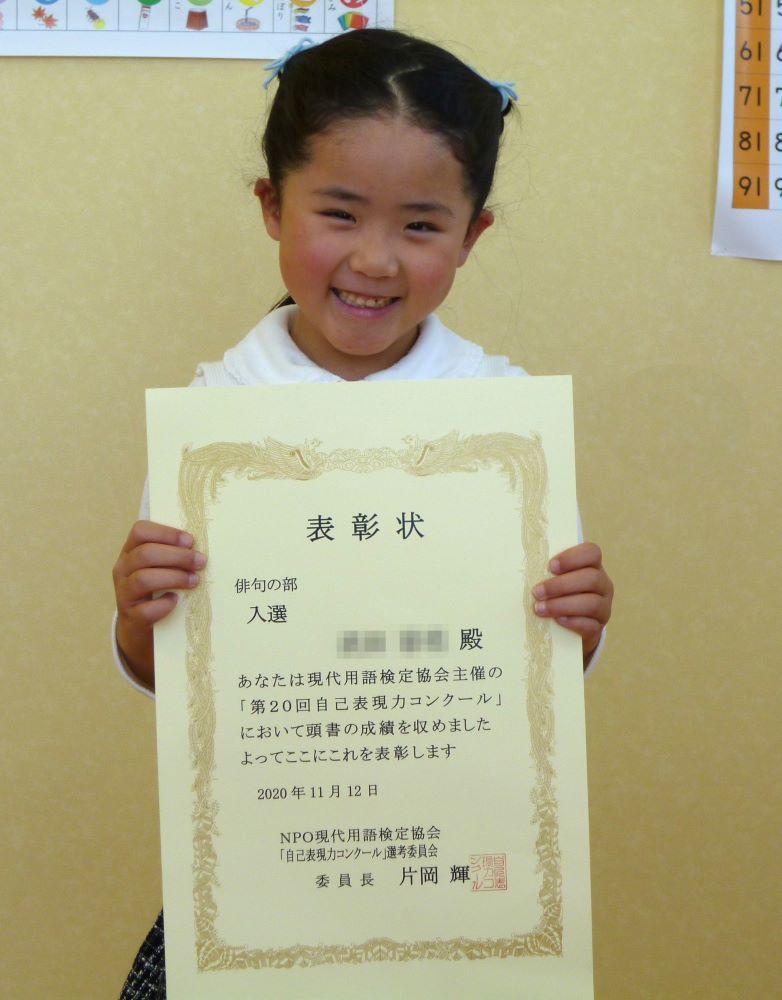 こ
ん
ぽり
み
51
5
61
6
71
7
81
8
91
9
表彰状
俳句の部
入選
殿
あなたは現代用語検定協会主催の
「第20回自己表現力コンクール」
において頭書の成績を収めました
よってここにこれを表彰します
2020年11月12日
NPO現代用語検定協会
「自己表現力コンクール」選考委員会
委員長 片岡 輝